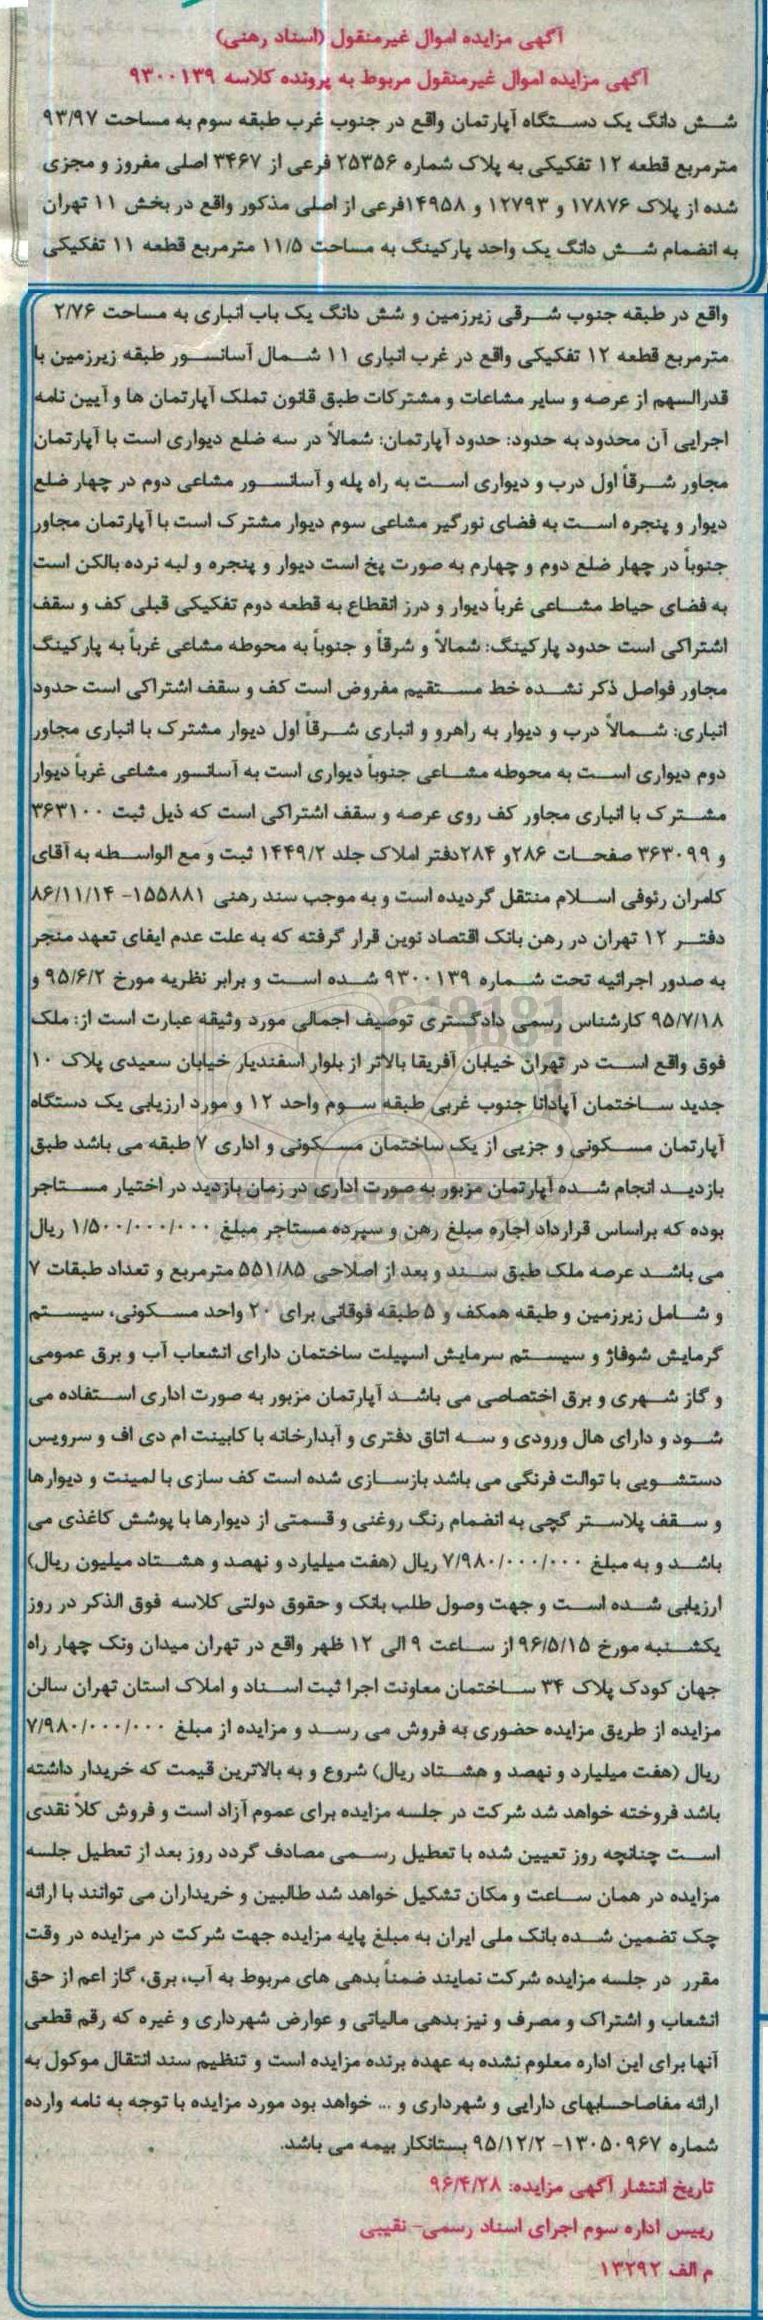 آگهی مزایده اموال غیرمنقول (اسناد رهنی)
آگهی مزایده اموال غیرمنقول مربوط به پرونده کلاسه ۹۳۰۰۱۳۹
شش دانگ یک دستگاه آپارتمان واقع در جنوب غرب طبقه سوم به مساحت ۹۳/۹۷
مترمربع قطعه ۱۲ تفکیکی به پلاک شماره ۲۵۳۵۶ فرعی از ۳۴۶۷ اصلی مفروز و مجزی
شده از پلاک ۱۷۸۷۶ و ۱۲۷۹۳ و ۱۴۹۵۸فرعی از اصلی مذکور واقع در بخش ۱۱ تهران
به انضمام شش دانگ یک واحد پارکینگ به مساحت ۱۱/۵ مترمربع قطعه ۱۱ تفکیکی
واقع در طبقه جنوب شرقی زیرزمین و شش دانگ یک باب انباری به مساحت ۲/۷۶
مترمربع قطعه ۱۲ تفکیکی واقع در غرب انباری ۱۱ شمال آسانسور طبقه زیرزمین با
قدرالسهم از عرصه و سایر مشاعات و مشترکات طبق قانون تملک آپارتمان ها و آیین نامه
اجرایی آن محدود به حدود: حدود آپارتمان: شمالاً در سه ضلع دیواری است با آپارتمان
مجاور شرقاً اول درب و دیواری است به راه پله و آسانسور مشاعی دوم در چهار ضلع
دیوار و پنجره است به فضای نورگیر مشاعی سوم دیوار مشترک است با آپارتمان مجاور
جنوباً در چهار ضلع دوم و چهارم به صورت پخ است دیوار و پنجره و لبه نرده بالکن است
به فضای حیاط مشاعی غرباً دیوار و درز انقطاع به قطعه دوم تفکیکی قبلی کف و سقف
اشتراکی است حدود پارکینگ: شمالاً و شرقاً و جنوباً به محوطه مشاعی غرباً به پارکینگ
مجاور فواصل ذکر نشده خط مستقیم مفروض است کف و سقف اشتراکی است حدود
انباری: شمالاً درب و دیوار به راهرو و انباری شرقاً اول دیوار مشترک با انباری مجاور
دوم دیواری است به محوطه مشاعی جنوباً دیواری است به آسانسور مشاعی غرباً دیوار
مشترک با انباری مجاور کف روی عرصه و سقف اشتراکی است که ذیل ثبت ۳۶۳۱۰۰
و ۳۶۳۰۹۹ صفحات ۲۸۶و ۲۸۴دفتر املاک جلد ۱۴۴۹/۲ ثبت و مع الواسطه به آقای
کامران رئوفی اسلام منتقل گردیده است و به موجب سند رهنی ۱۵۵۸۸۱- ۸۶/۱۱/۱۴
دفتر ۱۲ تهران در رهن بانک اقتصاد نوین قرار گرفته که به علت عدم ایفای تعهد منجر
به صدور اجرائیه تحت شماره ۹۳۰۰۱۳۹ شده است و برابر نظریه مورخ ۹۵/۶/۲ و
۹۵/۷/۱۸ کارشناس رسمی دادگستری توصیف اجمالی مورد وثیقه عبارت است از: ملک
فوق واقع است در تهران خیابان آفریقا بالاتر از بلوار اسفندیار خیابان سعیدی پلاک ۱۰
جدید ساختمان آپادانا جنوب غربی طبقه سوم واحد ۱۲ و مورد ارزیابی یک دستگاه
آپارتمان مسکونی و جزیی از یک ساختمان مسکونی و اداری ۷ طبقه می باشد طبق
بازدید انجام شده آپارتمان مزبور به صورت اداری در زمان بازدید در اختیار مستاجر
بوده که براساس قرارداد اجاره مبلغ رهن و سپرده مستاجر مبلغ ۱/۵۰۰/۰۰۰/۰۰۰ ریال
می باشد عرصه ملک طبق سند و بعد از اصلاحی ۵۵۱/۸۵ مترمربع و تعداد طبقات ۷
و شامل زیرزمین و طبقه همکف و ۵ طبقه فوقانی برای ۲۰ واحد مسکونی، سیستم
گرمایش شوفاژ و سیستم سرمایش اسپیلت ساختمان دارای انشعاب آب و برق عمومی
و گاز شهری و برق اختصاصی می باشد آپارتمان مزبور به صورت اداری استفاده می
شود و دارای هال ورودی و سه اتاق دفتری و آبدارخانه با کابینت ام دی اف و سرویس
دستشویی با توالت فرنگی می باشد بازسازی شده است کف سازی با لمینت و دیوارها
و سقف پلاستر گچی به انضمام رنگ روغنی و قسمتی از دیوارها با پوشش کاغذی می
باشد و به مبلغ ۷/۹۸۰/۰۰۰/۰۰۰ ریال (هفت میلیارد و نهصد و هشتاد میلیون ریال)
ارزیابی شده است و جهت وصول طلب بانک و حقوق دولتی کلاسه فوق الذکر در روز
یکشنبه مورخ ۹۶/۵/۱۵ از ساعت ۹ الی ۱۲ ظهر واقع در تهران میدان ونک چهار راه
جهان کودک پلاک ۳۴ ساختمان معاونت اجرا ثبت اسناد و املاک استان تهران سالن
مزایده از طریق مزایده حضوری به فروش می رسد و مزایده از مبلغ ۷/۹۸۰/۰۰۰/۰۰۰
ریال (هفت میلیارد و نهصد و هشتاد ریال) شروع و به بالاترین قیمت که خریدار داشته
باشد فروخته خواهد شد شرکت در جلسه مزایده برای عموم آزاد است و فروش کلاً نقدی
است چنانچه روز تعیین شده با تعطیل رسمی مصادف گردد روز بعد از تعطیل جلسه
مزایده در همان ساعت و مکان تشکیل خواهد شد طالبین و خریداران می توانند با ارائه
چک تضمین شده بانک ملی ایران به مبلغ پایه مزایده جهت شرکت در مزایده در وقت
مقرر در جلسه مزایده شرکت نمایند ضمناً بدهی های مربوط به آب، برق، گاز اعم از حق
انشعاب و اشتراک و مصرف و نیز بدهی مالیاتی و عوارض شهرداری و غیره که رقم قطعی
آنها برای این اداره معلوم نشده به عهده برنده مزایده است و تنظیم سند انتقال موکول به
ارائه مفاصاحسابهای دارایی و شهرداری و ... خواهد بود مورد مزایده با توجه به نامه وارده
شماره ۱۳۰۵۰۹۶۷- ۹۵/۱۲/۲ بستانکار بیمه می باشد.
تاریخ انتشار آگهی مزایده: ۹۶/۴/۲۸
رییس اداره سوم اجرای اسناد رسمی- نقیبی
م الف ۱۳۲۹۲